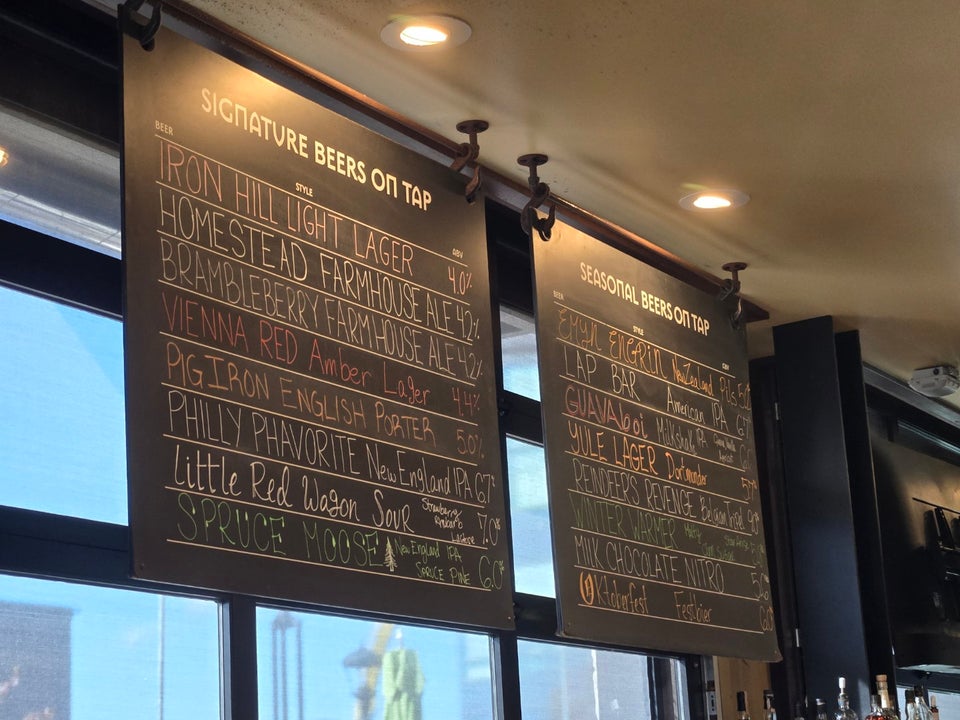 SIGNATURE BEERS ON TAP
BEER STYLE ABV
IRON HILL LIGHT LAGER 4.0%
HOMESTEAD FARMHOUSE ALE 4.2%
BRAMBLEBERRY FARMHOUSE ALE 4.2%
VIENNA RED Amber Lager 4.4%
PIG IRON ENGLISH PORTER 5.0%
PHILLY PHAVORITE New England IPA 6.7%
Little Red Wagon Sour Strawberry Rhubarb Lactose 7.0%
SPRUCE MOOSE New England IPA SPRUCE PINE 6.0%
SEASONAL BEERS ON TAP
BEER STYLE ABV
EMYN ENGRIN New Zealand Pils
LAP BAR American IPA
GUAVABoi Milkshake IPA
YULE LAGER Dortmunder
REINDEERS REVENGE Belgian Tripel
WINTER WARMER
MILK CHOCOLATE NITRO
Oktoberfest Festbier